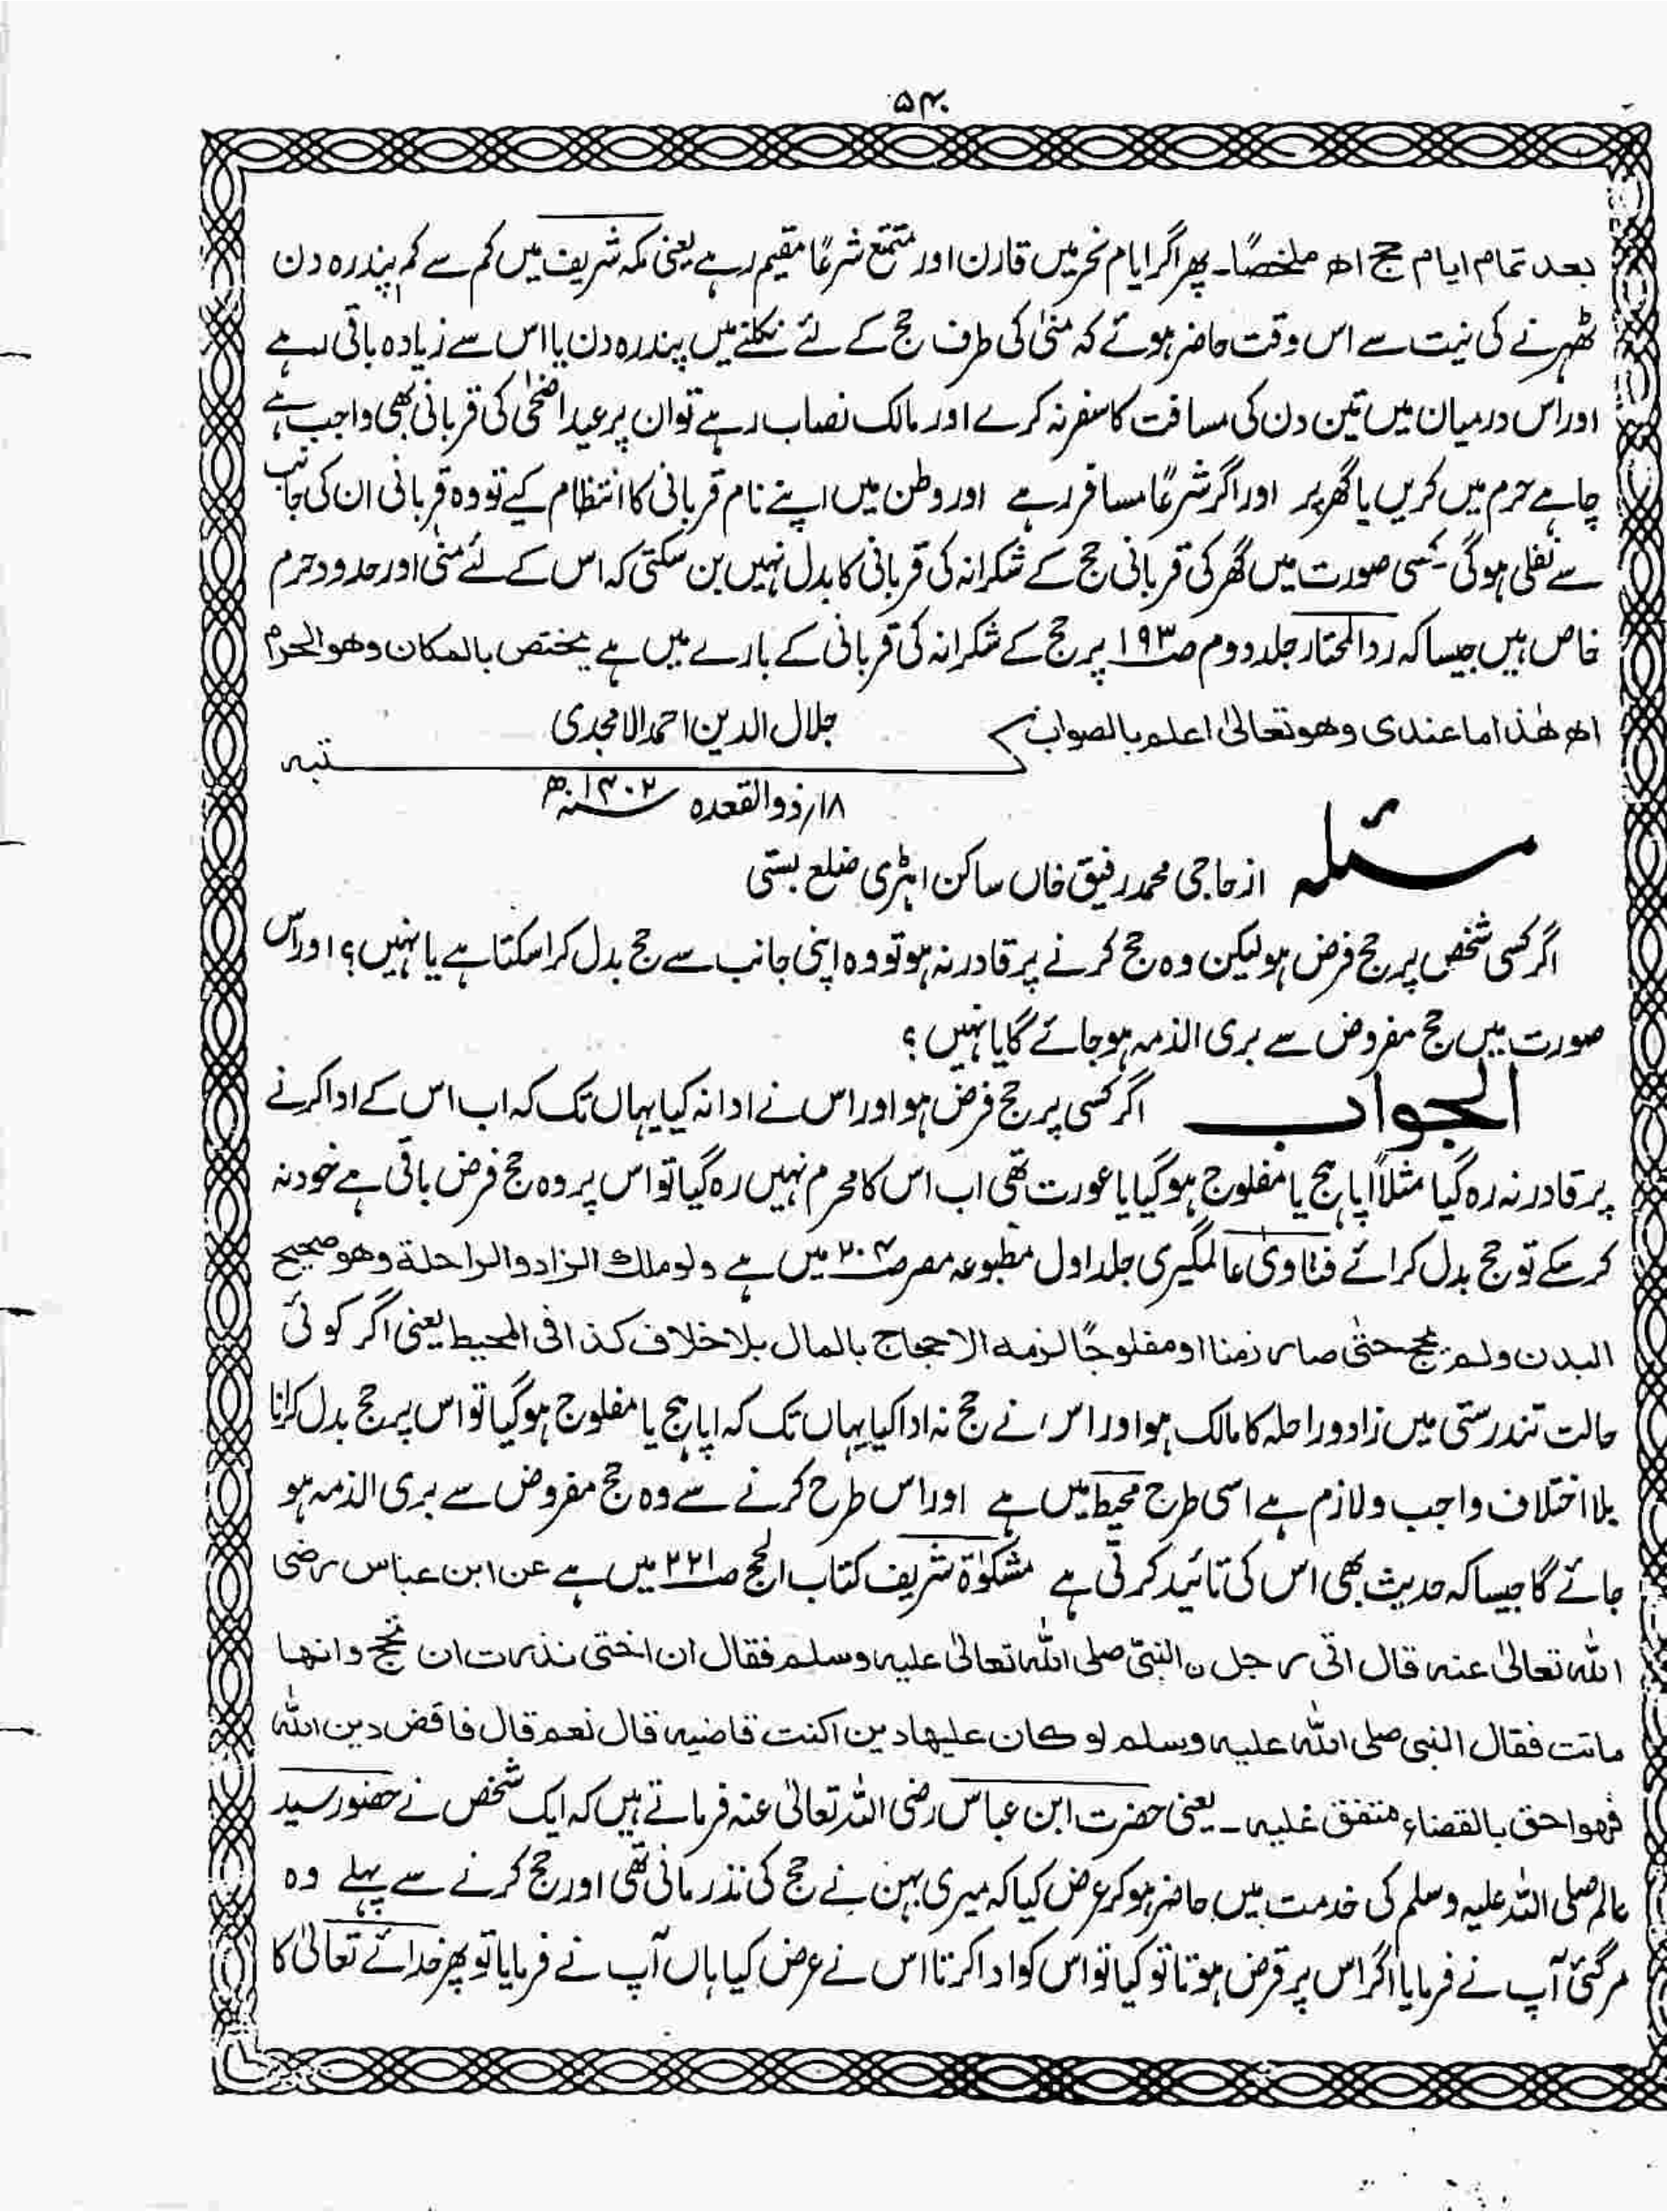 ۵۴۰
بعد تمام ایام حج اھ ملخصًا۔ پھر اگر ایام نحر میں قارن اور متمتع شرعًا مقیم رہے یعنی مکہ شریف میں کم سے کم پندرہ دن
ٹھہرنے کی نیت سے اس وقت حاضر ہوئے کہ منیٰ کی طرف حج کے لئے نکلنے میں پندرہ دن یا اس سے زیادہ باقی رہے
اور اس درمیان میں تین دن کی مسافت کا سفر نہ کرے اور مالک نصاب رہے تو ان پر عید اضحٰی کی قربانی بھی واجب ہے
چاہے حرم میں کریں یا گھر پر اور اگر شرعًا مسافر رہے اور وطن میں اپنے نام قربانی کا انتظام کیے تو وہ قربانی ان کی جانب
سے نفلی ہوگی۔ کسی صورت میں گھر کی قربانی حج کے شکرانہ کی قربانی کا بدل نہیں بن سکتی کہ اس کے لئے منیٰ اور حدود حرم
خاص ہیں جیسا کہ ردالمحتار جلد دوم صـ۱۹۳ پر حج کے شکرانہ کی قربانی کے بارے میں ہے یختص بالمکان وھو الحرم
اھ ھٰذا ما عندی وھو تعالیٰ اعلم بالصواب
جلال الدین احمد الامجدی
تبہ
۱۸؍ ذوالقعدہ سنہ ۱۴۰۲ھ
مسئلہ از حاجی محمد رفیق خاں ساکن اہٹری ضلع بستی
اگر کسی شخص پر حج فرض ہو لیکن وہ حج کرنے پر قادر نہ ہو تو وہ اپنی جانب سے حج بدل کرا سکتا ہے یا نہیں؟ اور اس
صورت میں حج مفروض سے بری الذمہ ہو جائے گا یا نہیں؟
الجواب اگر کسی پر حج فرض ہو اور اس نے ادا نہ کیا یہاں تک کہ اب اس کے ادا کرنے
پر قادر نہ رہ گیا مثلاً اپاہج یا مفلوج ہو گیا یا عورت تھی اب اس کا محرم نہیں رہ گیا تو اس پر وہ حج فرض باقی ہے خود نہ
کر سکے تو حج بدل کرائے فتاویٰ عالمگیری جلد اول مطبوعہ مصر صـ۲۰۴ میں ہے ولو ملک الزاد والراحلۃ وھو صحیح
البدن ولم یحج حتٰی صار زمنا او مفلوجًا لزمہ الاحجاج بالمال بلا خلاف کذا فی المحیط یعنی اگر کوئی
حالت تندرستی میں زاد و راحلہ کا مالک ہوا ور اس نے حج نہ ادا کیا یہاں تک کہ اپاہج یا مفلوج ہو گیا تو اس پر حج بدل کرانا
بلا اختلاف واجب و لازم ہے اسی طرح محیط میں ہے اور اس طرح کرنے سے وہ حج مفروض سے بری الذمہ ہو
جائے گا جیسا کہ حدیث بھی اس کی تائید کرتی ہے مشکوٰۃ شریف کتاب الحج صـ۲۲۱ میں ہے عن ابن عباس رضی
اللہ تعالیٰ عنہ قال اتی رجل ن النبیّ صلی اللہ تعالیٰ علیہ وسلم فقال ان اختی نذرت ان تحج وانھا
ماتت فقال النبی صلی اللہ علیہ وسلم لو کان علیھا دین اکنت قاضیہ قال نعم قال فاقض دین اللہ
فھو احق بالقضاء متفق علیہ۔ یعنی حضرت ابن عباس رضی اللہ تعالیٰ عنہ فرماتے ہیں کہ ایک شخص نے حضور سید
عالم صلی اللہ علیہ وسلم کی خدمت میں حاضر ہو کر عرض کیا کہ میری بہن نے حج کی نذر مانی تھی اور حج کرنے سے پہلے وہ
مر گئی آپ نے فرمایا اگر اس پر قرض ہوتا تو کیا تو اس کو ادا کرتا اس نے عرض کیا ہاں آپ نے فرمایا تو پھر خدائے تعالیٰ کا